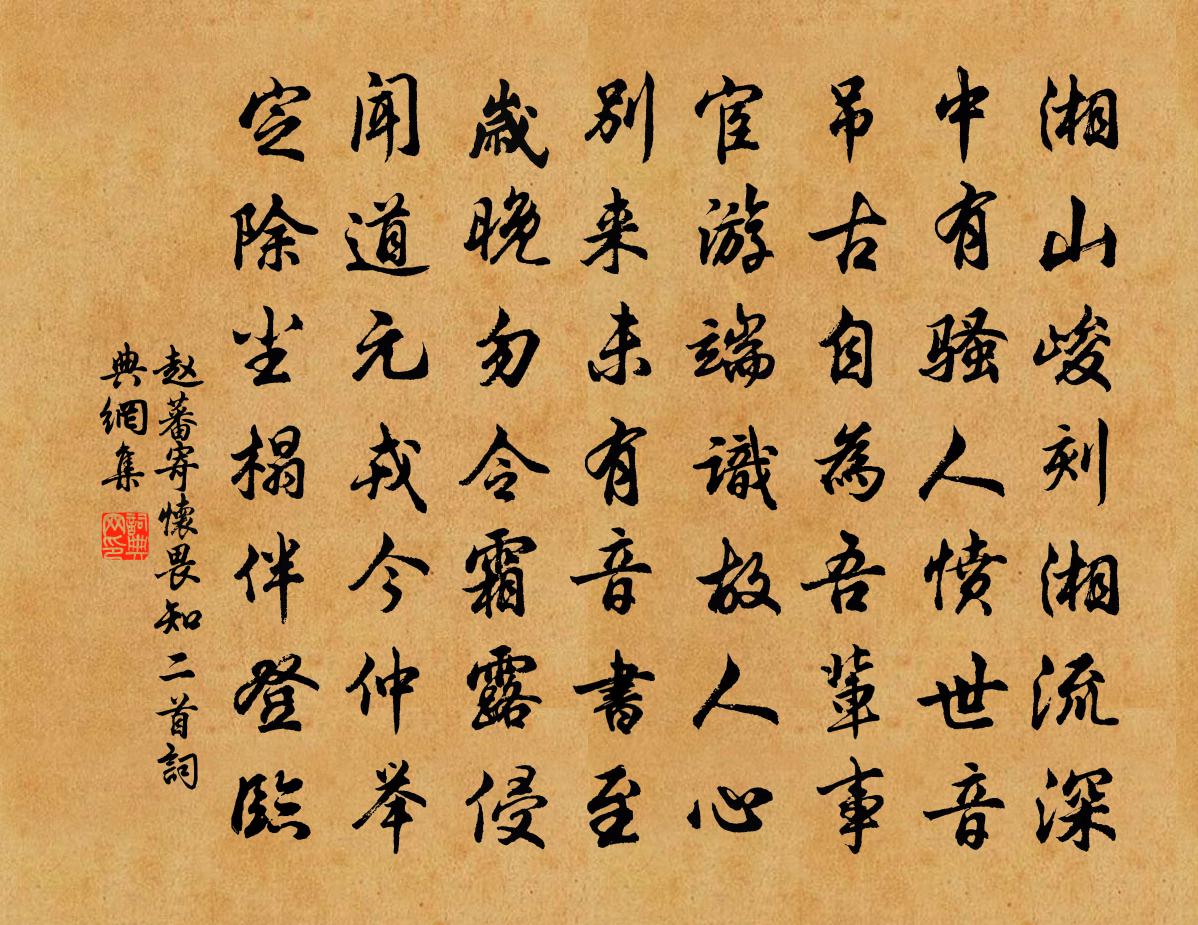 湘山峻刻湘流深
中有骚人愤世音
吊古自為吾輩事
宦游端識故人心
别来未有音書至
歲晚勿令霜露侵
闻道元戎今仲举
定除尘榻伴登臨
赵蕃寄懷畏知二首詞
典網集
詞典
网印